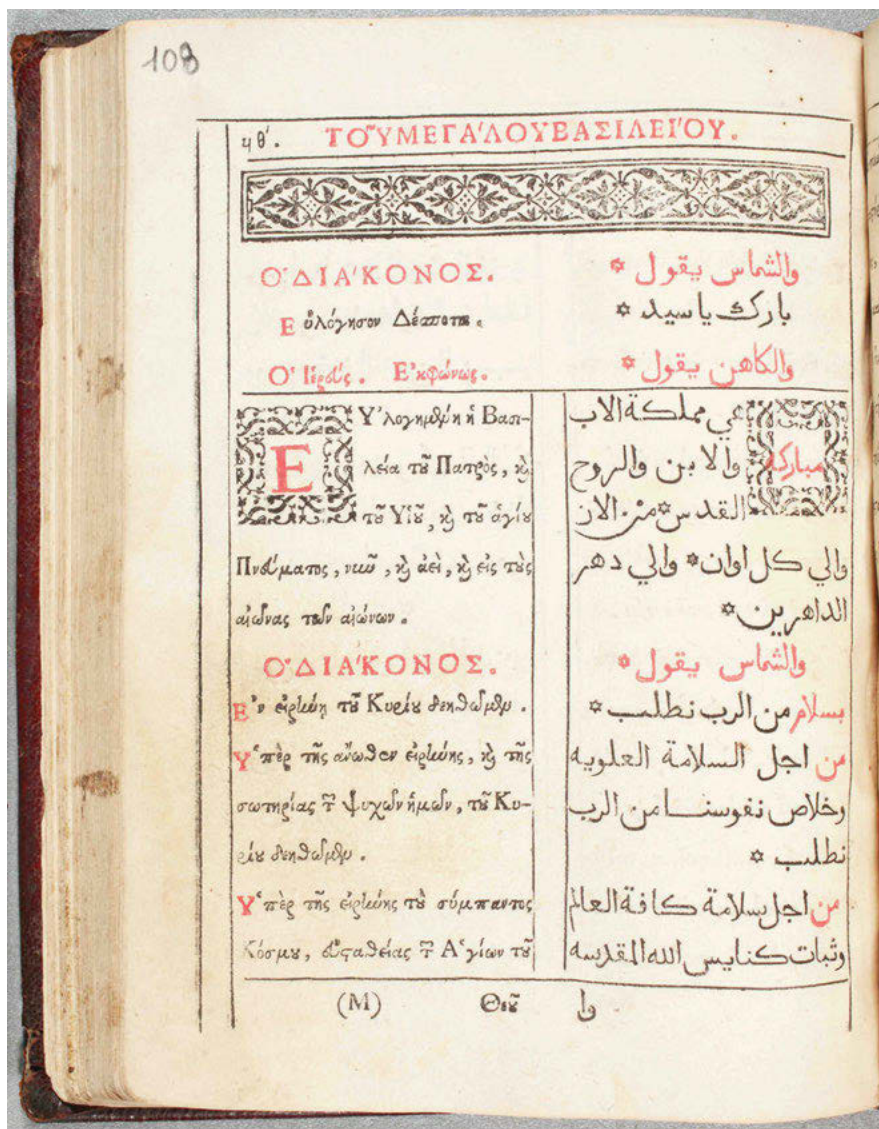 108
ϥθ΄. ΤΟΥ͂ ΜΕΓΑ΄ΛΟΥ ΒΑΣΙΛΕΙ΄ΟΥ.
Ο῾ ΔΙΑ΄ΚΟΝΟΣ.
Εὐλόγησον Δέσποτα.
Ο῾ Ἱερεύς. Ἐκφώνως.
ΕΥ᾿λογημένη ἡ Βασι-
λεία τοῦ Πατρὸς, καὶ
τοῦ Υἱοῦ, καὶ τοῦ ἁγίου
Πνεύματος, νῦν, καὶ ἀεὶ, καὶ εἰς τοὺς
αἰῶνας τῶν αἰώνων.
Ο῾ ΔΙΑ΄ΚΟΝΟΣ.
Ἐν εἰρήνῃ τοῦ Κυρίου δεηθῶμεν.
Ὑπὲρ τῆς ἄνωθεν εἰρήνης, καὶ τῆς
σωτηρίας τῶν ψυχῶν ἡμῶν, τοῦ Κυ-
ρίου δεηθῶμεν.
Ὑπὲρ τῆς εἰρήνης τοῦ σύμπαντος
Κόσμου, εὐσταθείας τῶν Ἁγίων τοῦ
والشماس يقول *
بارك يا سيد *
والكاهن يقول *
مباركة هي مملكة الاب
والابن والروح
القدس * من الان
والي كل اوان * والي دهر
الداهرين *
والشماس يقول *
بسلام من الرب نطلب *
من اجل السلامة العلويه
وخلاص نفوسنا من الرب
نطلب *
من اجل سلامة كافة العالم
وثبات كنايس الله المقدسه
(Μ) Θεοῦ وا